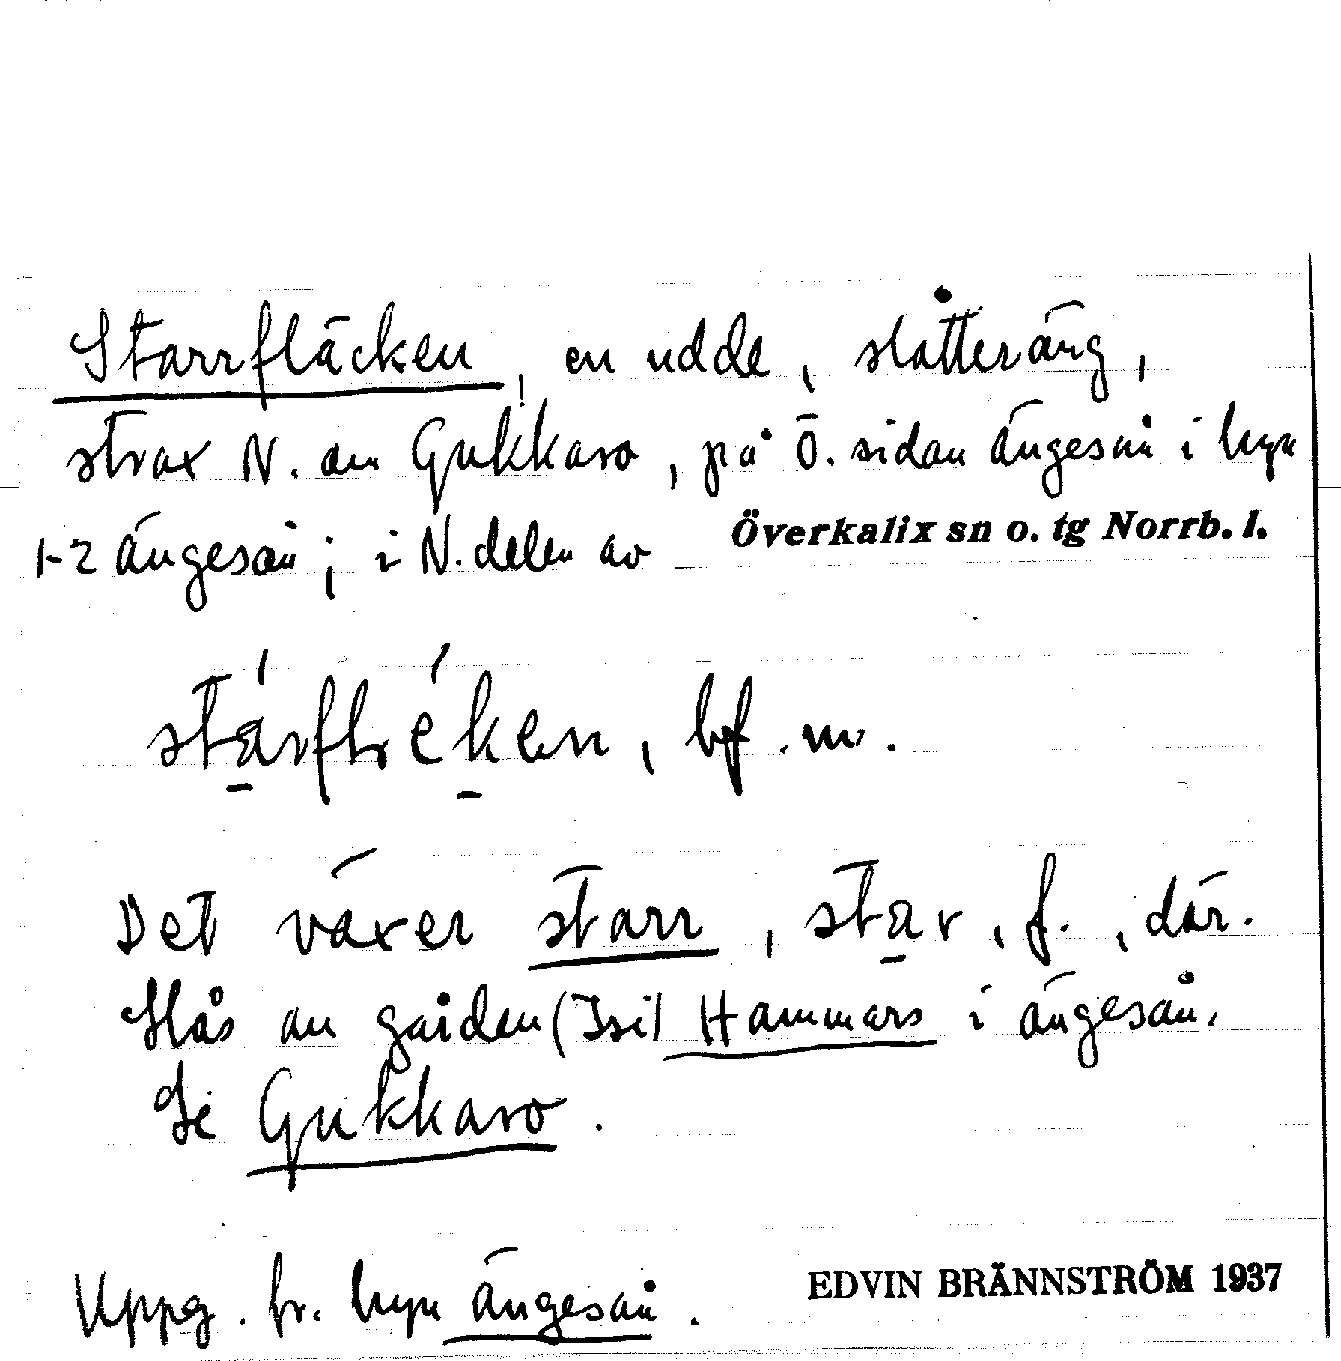 Starrfläcken, en udde, slåtteräng,
strax N. om Gukkaro, på Ö. sidan Ängesån i byn
1-2 Ängesån; i N. delen av Överkalix sn o. tg Norrb. l.
bf. m.
Det växer starr, star, f., där.
Slås av gården (Isi) Hammars i Ängesån.
Se Gukkaro.
Uppg. fr. byn Ängesån. EDVIN BRÄNNSTRÖM 1937